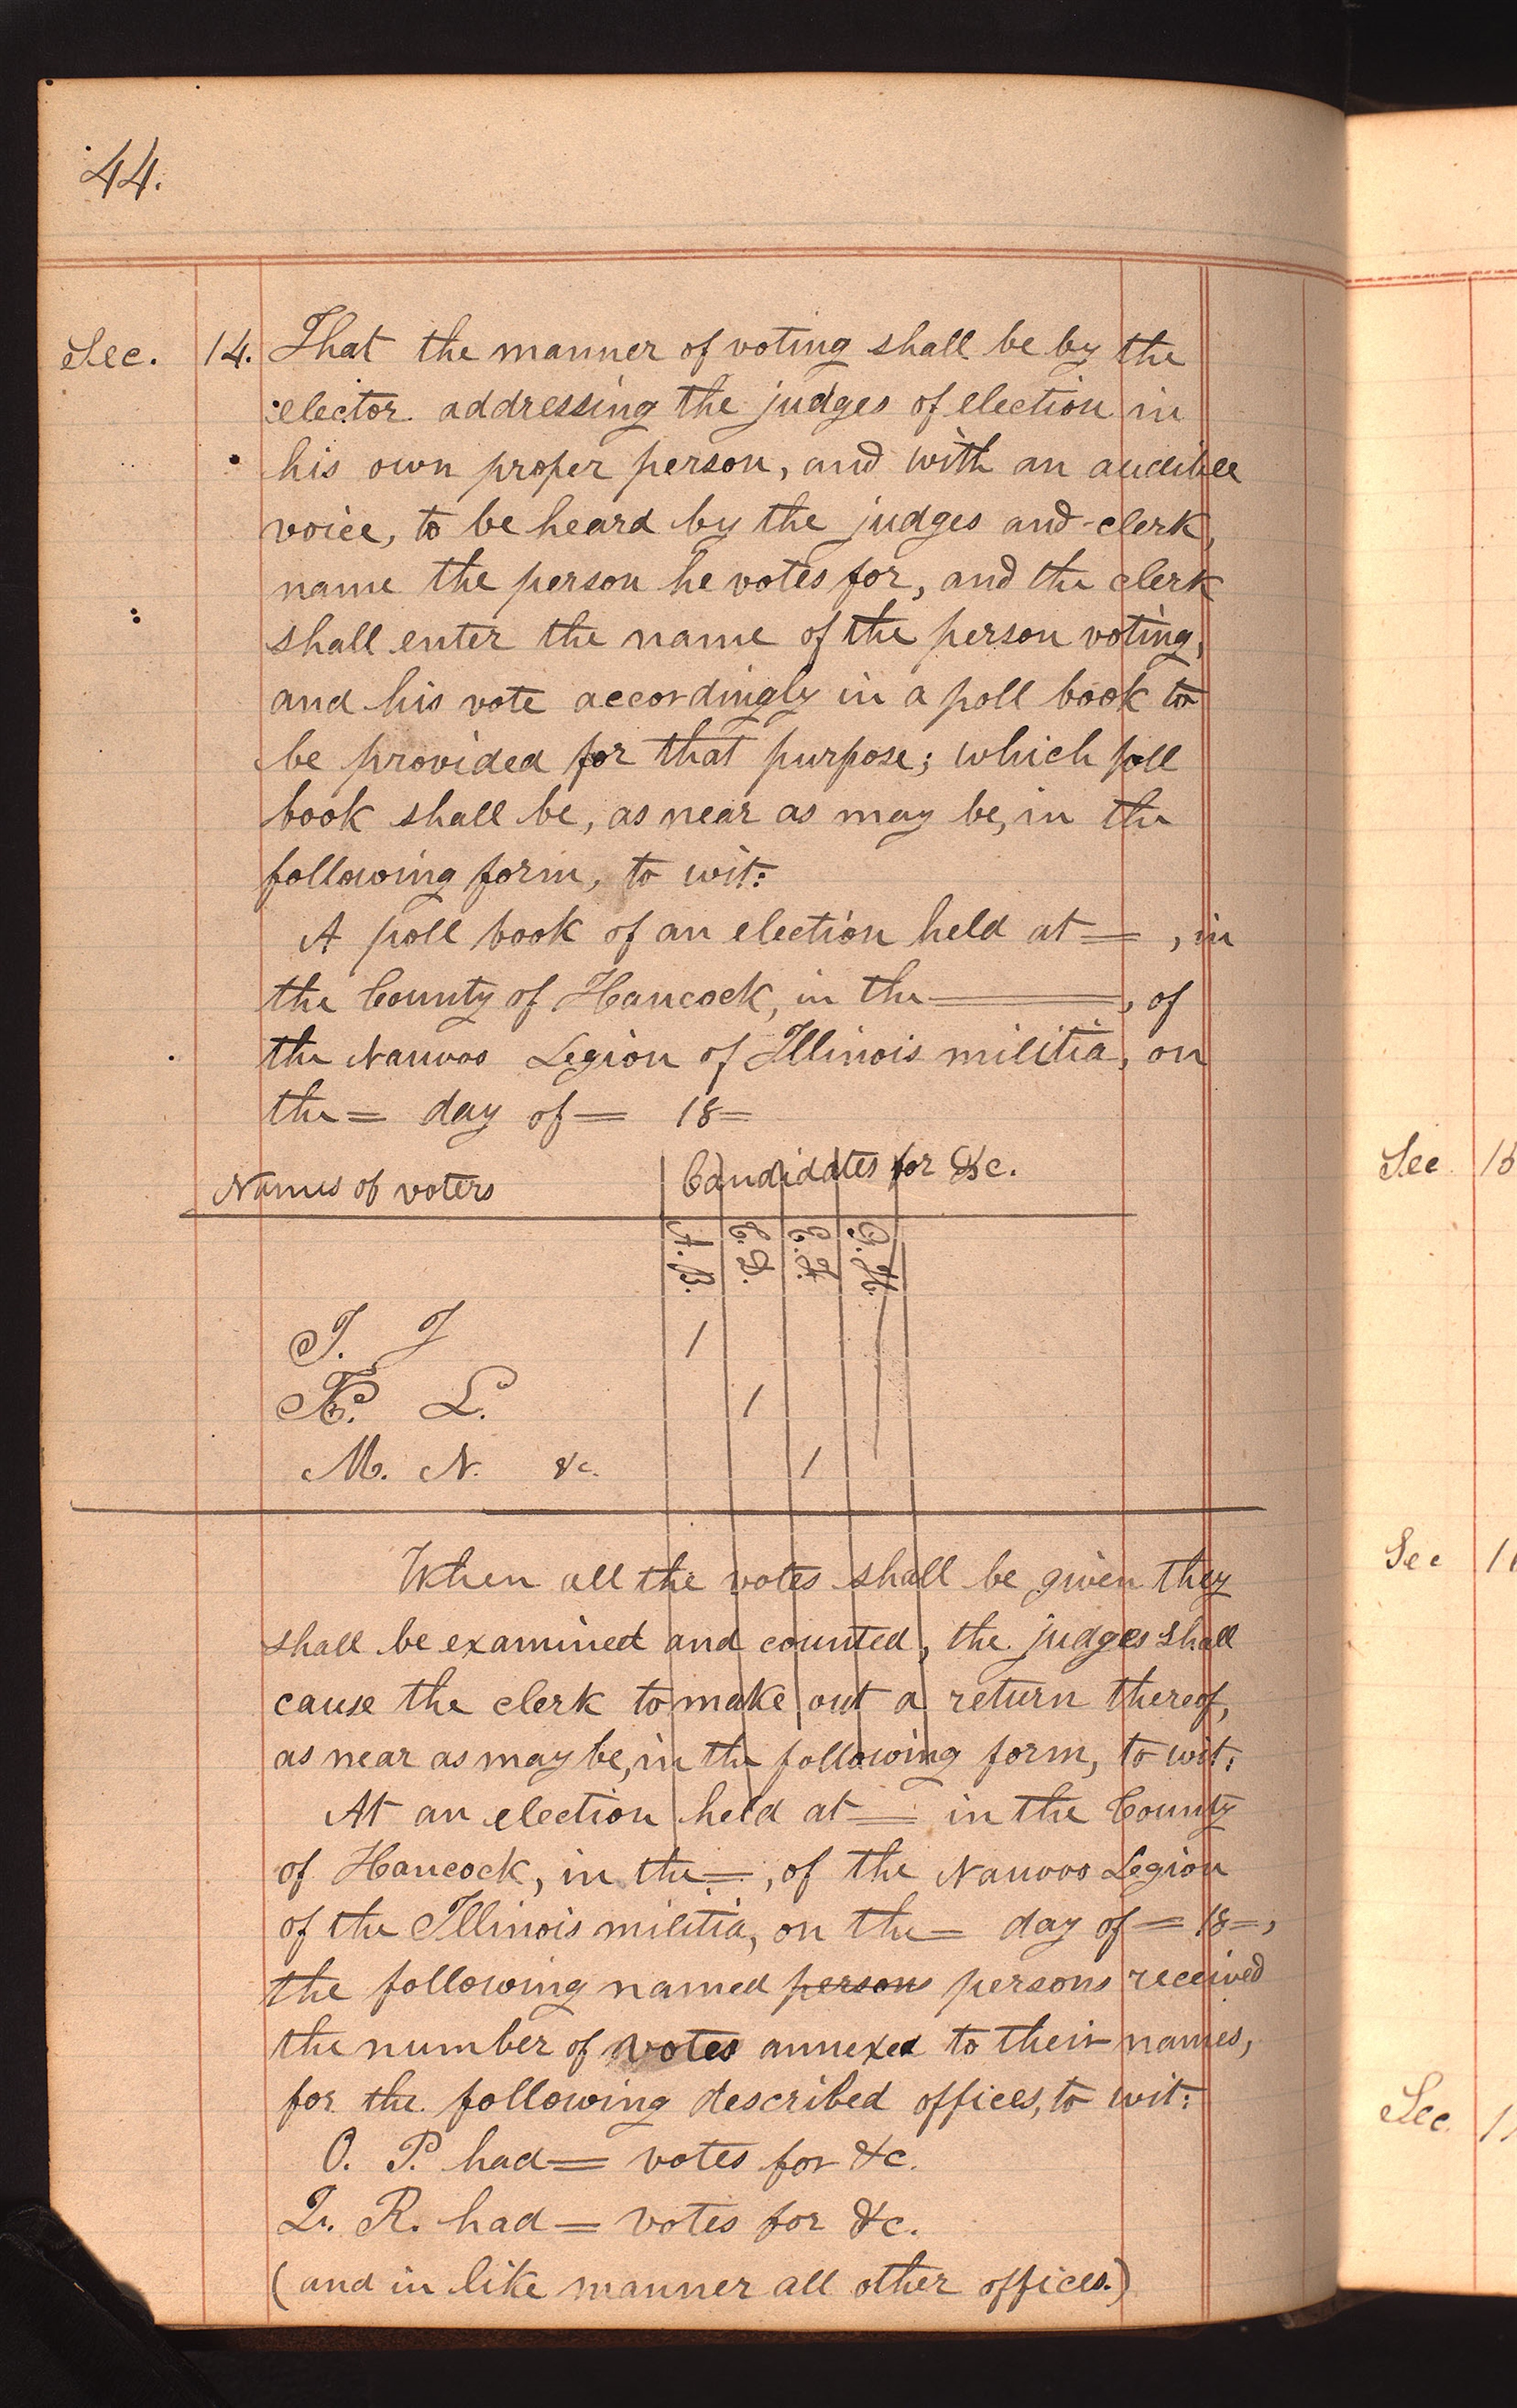 44.
Sec. 14. That the manner of voting shall be by the
elector addressing the judges of election in
his own proper person, and with an audible
voice, to be heard by the judges and clerk,
name the person he votes for, and the clerk
shall enter the name of the person voting,
and his vote accordingly in a poll book to
be provided for that purpose; which poll
book shall be, as near as may be, in the
following form, to wit:
A poll book of an election held at = , in
the County of Hancock, in the =, of
the Nauvoo Legion of Illinois militia, on
the = day of = 18=
Names of voters Candidates for &c.
A. B. C. D. E. F. G. H.
I. J 1
K. L. 1
M. N. &c. 1
When all the votes shall be given they
shall be examined and counted, the judges shall
cause the clerk to make out a return thereof,
as near as may be, in the following form, to wit:
At an election held at = in the County
of Hancock, in the =, of the Nauvoo Legion
of the Illinois militia, on the = day of = 18=,
the following named persons persons received
the number of votes annexed to their names,
for the following described offices, to wit:
O. P. had = votes for &c.
Q. R. had = votes for &c.
(and in like manner all other offices.)
Sec 15
Sec 1
Sec. 1